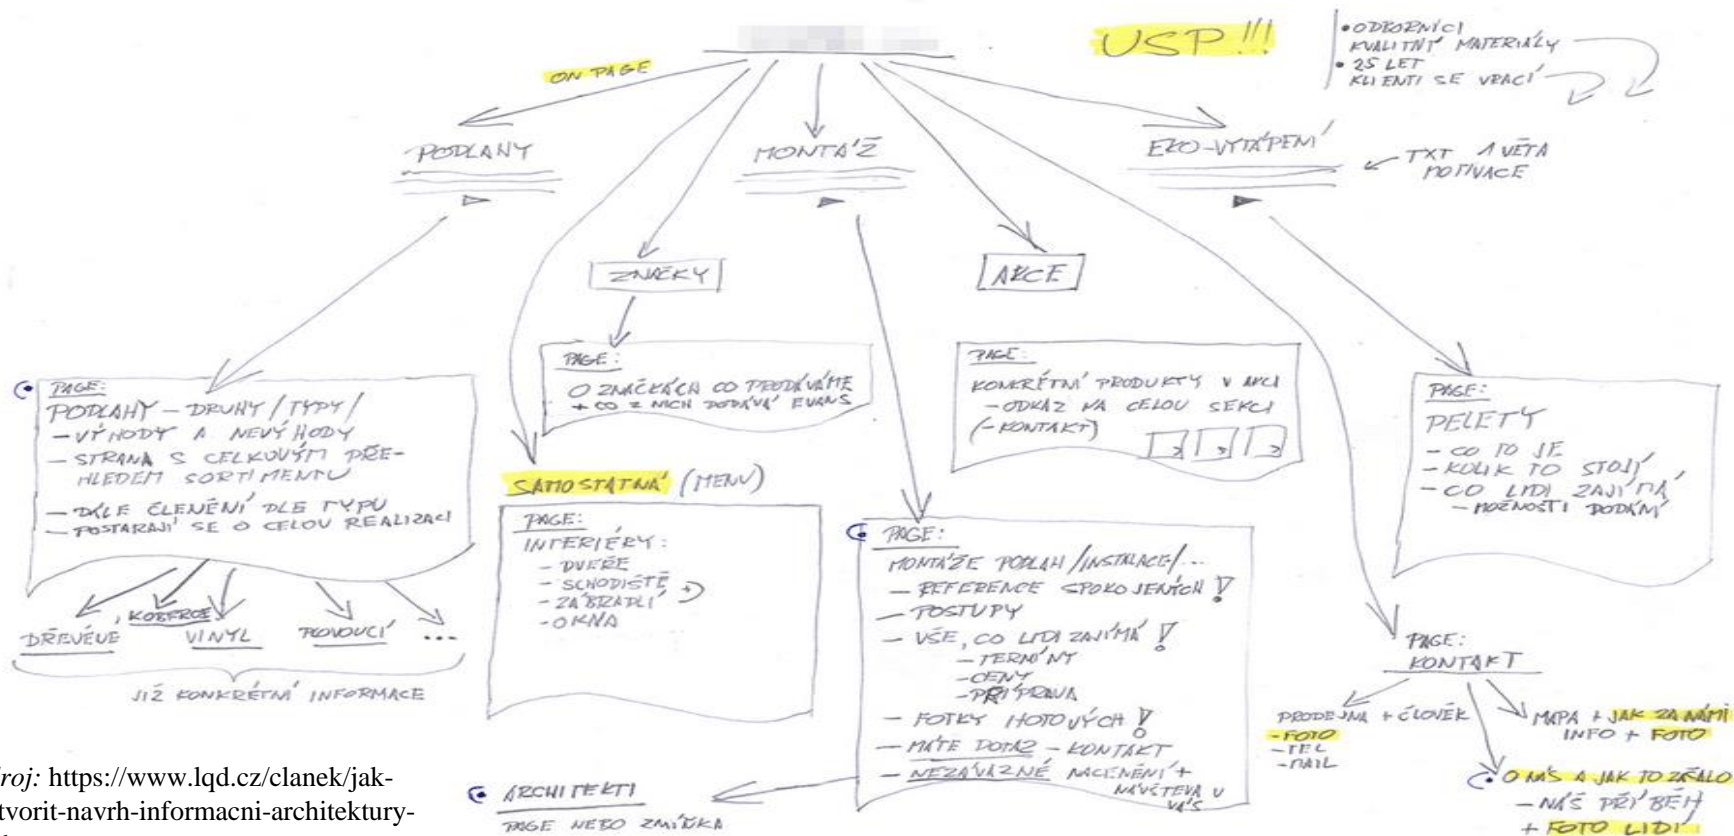 USP!!!
• ODBORNÍCI
KVALITNÍ MATERIÁLY
• 25 LET
KLIENTI SE VRACÍ
ON PAGE
PODLAHY
MONTÁŽ
EKO-VYTÁPENÍ
TXT 1 VĚTA
MOTIVACE
ZNAČKY
AKCE
PAGE:
PODLAHY – DRUHY/TYPY/
– VÝHODY A NEVÝHODY
– STRANA S CELKOVÝM PŘE-
HLEDEM SORTIMENTU
– DÁLE ČLENĚNÍ DLE TYPU
– POSTARAJÍ SE O CELOU REALIZACI
DŘEVĚVÉ
, KOBERCE
VINYL
PLOVOUCÍ
...
JIŽ KONKRÉTNÍ INFORMACE
PAGE:
O ZNAČKÁCH CO PRODÁVÁME
+ CO Z NICH DODÁVÁ EVANS
SAMOSTATNÁ (MENU)
PAGE:
INTERIÉRY:
– DVEŘE
– SCHODIŠTĚ
– ZÁBRADLÍ
– OKNA
PAGE:
KONKRÉTNÍ PRODUKTY V AKCI
– ODKAZ NA CELOU SEKCI
(– KONTAKT)
PAGE:
MONTÁŽE PODLAH/INSTALACE/...
– REFERENCE SPOKOJENÝCH !
– POSTUPY
– VŠE, CO LIDI ZAJÍMÁ !
– TERMÍNY
– CENY
– PŘÍPRAVA
– FOTKY HOTOVÝCH !
– MÁTE DOTAZ – KONTAKT
– NEZÁVAZNÉ NACENĚNÍ +
NÁVŠTĚVA U
VÁS
ARCHITEKTI
PAGE NEBO ZMÍŇKA
PAGE:
PELETY
– CO TO JE
– KOLIK TO STOJÍ
– CO LIDI ZAJÍMÁ
– MOŽNOSTI DODÁNÍ
PAGE:
KONTAKT
PRODEJNA + ČLOVĚK
– FOTO
– TEL
– MAIL
MAPA + JAK ZA NÁMI
INFO + FOTO
O NÁS A JAK TO ZAČALO
– NÁŠ PŘÍBĚH
+ FOTO LIDÍ
roj: https://www.lqd.cz/clanek/jak-
tvorit-navrh-informacni-architektury-